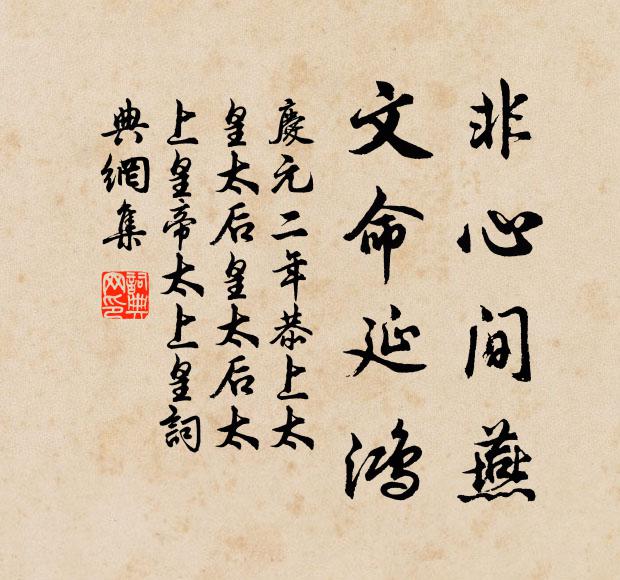 非心间燕
文命延鸿
慶元二年恭上太
皇太后皇太后太
上皇帝太上皇詞
典網集
詞典网印